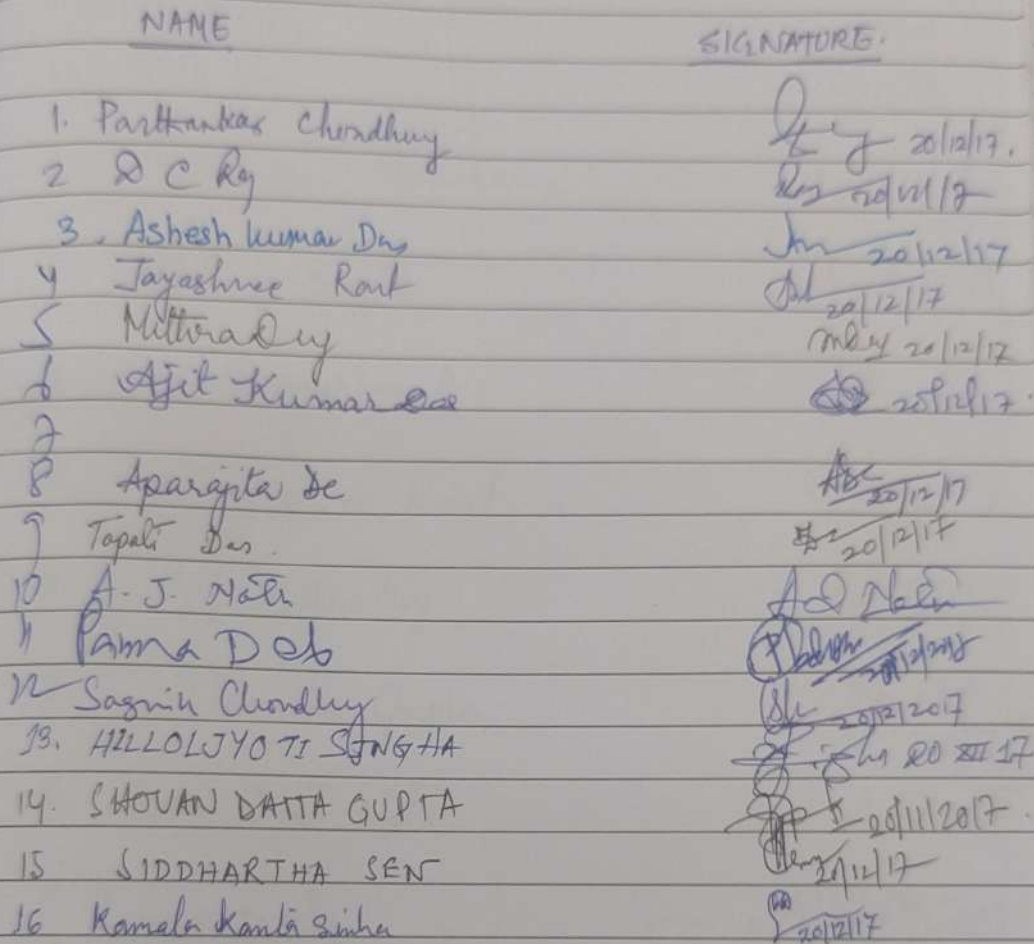 NAME SIGNATURE.
1. Parthankar Choudhury 20/12/17.
2 D C Ray Ray 20/12/17
3. Ashesh kumar Das 20/12/17
4 Jayashree Rout 20/12/17
5 Mithra Dey mDey 20/12/17
6 Ajit Kumar Das 20/12/17.
7
8 Aparajita De ADe 20/12/17
9 Tapati Das. 20/12/17
10 A. J. Nath A J Nath
11 Panna Deb 20/12/2017
12 Sagnik Choudhury 20/12/2017
13. HILLOLJYOTI SINGHA 20 XII 17
14. SHOUAN DATTA GUPTA 20/11/2017.
15 SIDDHARTHA SEN 20/12/17
16 Kamala Kanta Sinha 20/12/17